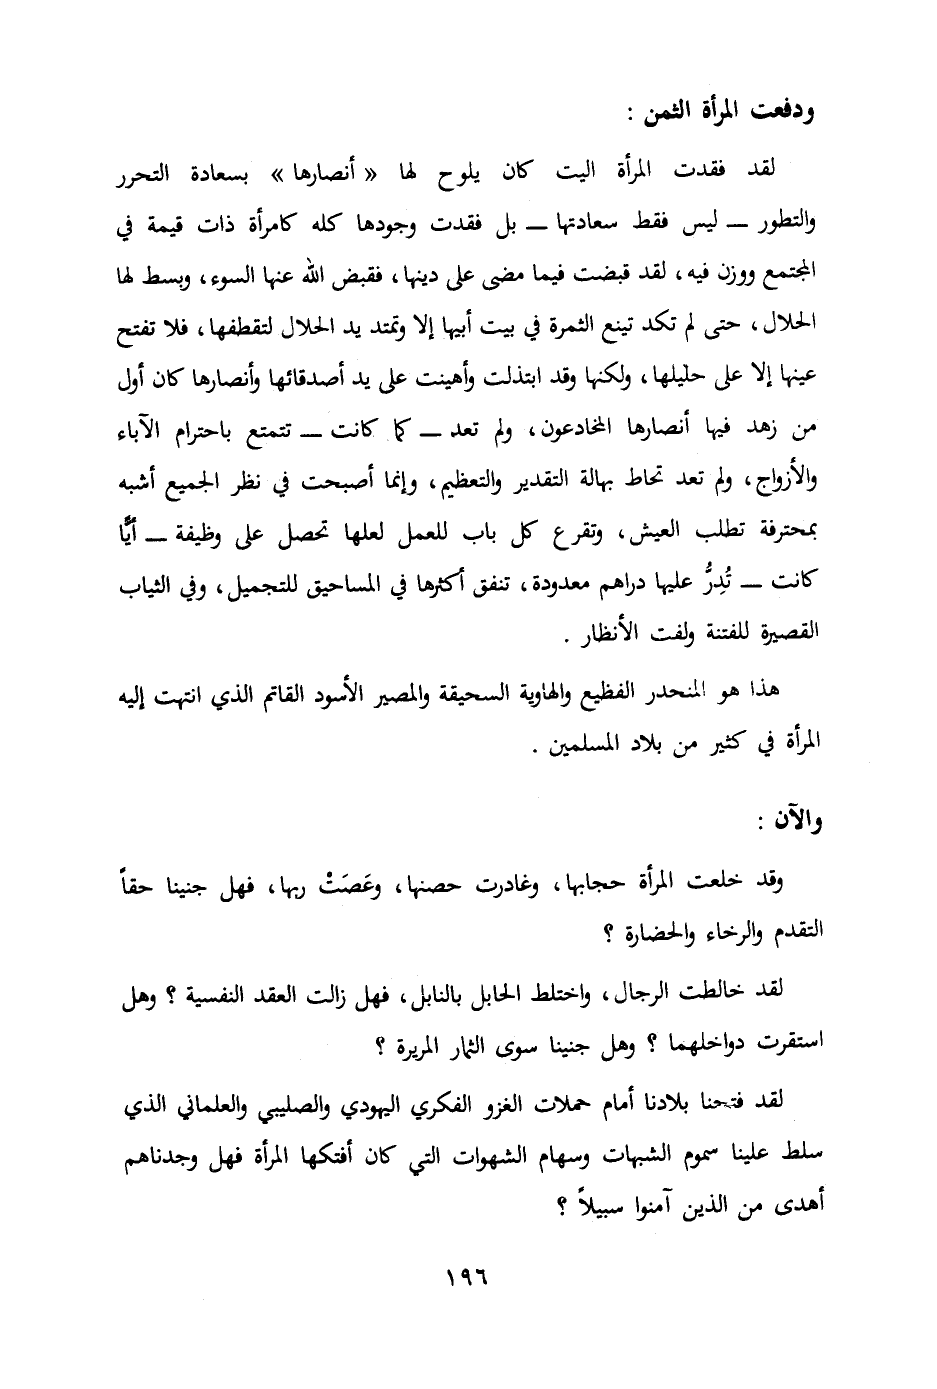 ودفعت المرأة الثمن :
لقد فقدت المرأة اليت كان يلوح لها « أنصارها » بسعادة التحرر
والتطور ــ ليس فقط سعادتها ــ بل فقدت وجودها كله كامرأة ذات قيمة في
المجتمع ووزن فيه ، لقد قبضت فيما مضى على دينها ، فقبض الله عنها السوء ، وبسط لها
الحلال ، حتى لم تكد تينع الثمرة في بيت أبيها إلا وتمتد يد الحلال لتقطفها ، فلا تفتح
عينها إلا على حليلها ، ولكنها وقد ابتذلت وأهينت على يد أصدقائها وأنصارها كان أول
من زهد فيها أنصارها المخادعون ، ولم تعد ــ كما كانت ــ تتمتع باحترام الآباء
والأزواج ، ولم تعد تحاط بهالة التقدير والتعظيم ، وإنما أصبحت في نظر الجميع أشبه
بمحترفة تطلب العيش ، وتقرع كل باب للعمل لعلها تحصل على وظيفة ــ أيًّا
كانت ــ تُدِرُّ عليها دراهم معدودة ، تنفق أكثرها في المساحيق للتجميل ، وفي الثياب
القصيرة للفتنة ولفت الأنظار .
هذا هو المنحدر الفظيع والهاوية السحيقة والمصير الأسود القاتم الذي انتهت إليه
المرأة في كثير من بلاد المسلمين .
والآن :
وقد خلعت المرأة حجابها ، وغادرت حصنها ، وعَصَتْ ربها ، فهل جنينا حقاً
التقدم والرخاء والحضارة ؟
لقد خالطت الرجال ، واختلط الحابل بالنابل ، فهل زالت العقد النفسية ؟ وهل
استقرت دواخلهما ؟ وهل جنينا سوى الثمار المريرة ؟
لقد فتحنا بلادنا أمام حملات الغزو الفكري اليهودي والصليبي والعلماني الذي
سلط علينا سموم الشبهات وسهام الشهوات التي كان أفتكها المرأة فهل وجدناهم
أهدى من الذين آمنوا سبيلاً ؟
١٩٦